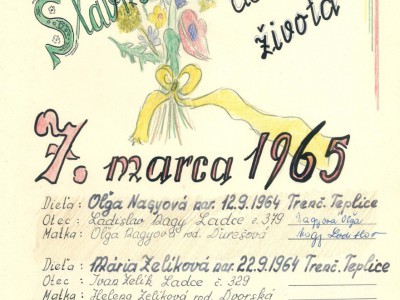 Slávn
do
života
7. marca 1965
Dieťa: Oľga Nagyová nar. 12.9.1964 Trenč. Teplice
Otec: Ladislav Nagy Ladce č. 379 Nagyová Oľga
Matka: Oľga Nagyová rod. Ďurežová Nagy Ladislav
Dieťa: Mária Zelíková nar. 22.9.1964 Trenč. Teplice
Otec: Ivan Zelík Ladce č. 329
Matka: Helena Zelíková rod. Dvorská